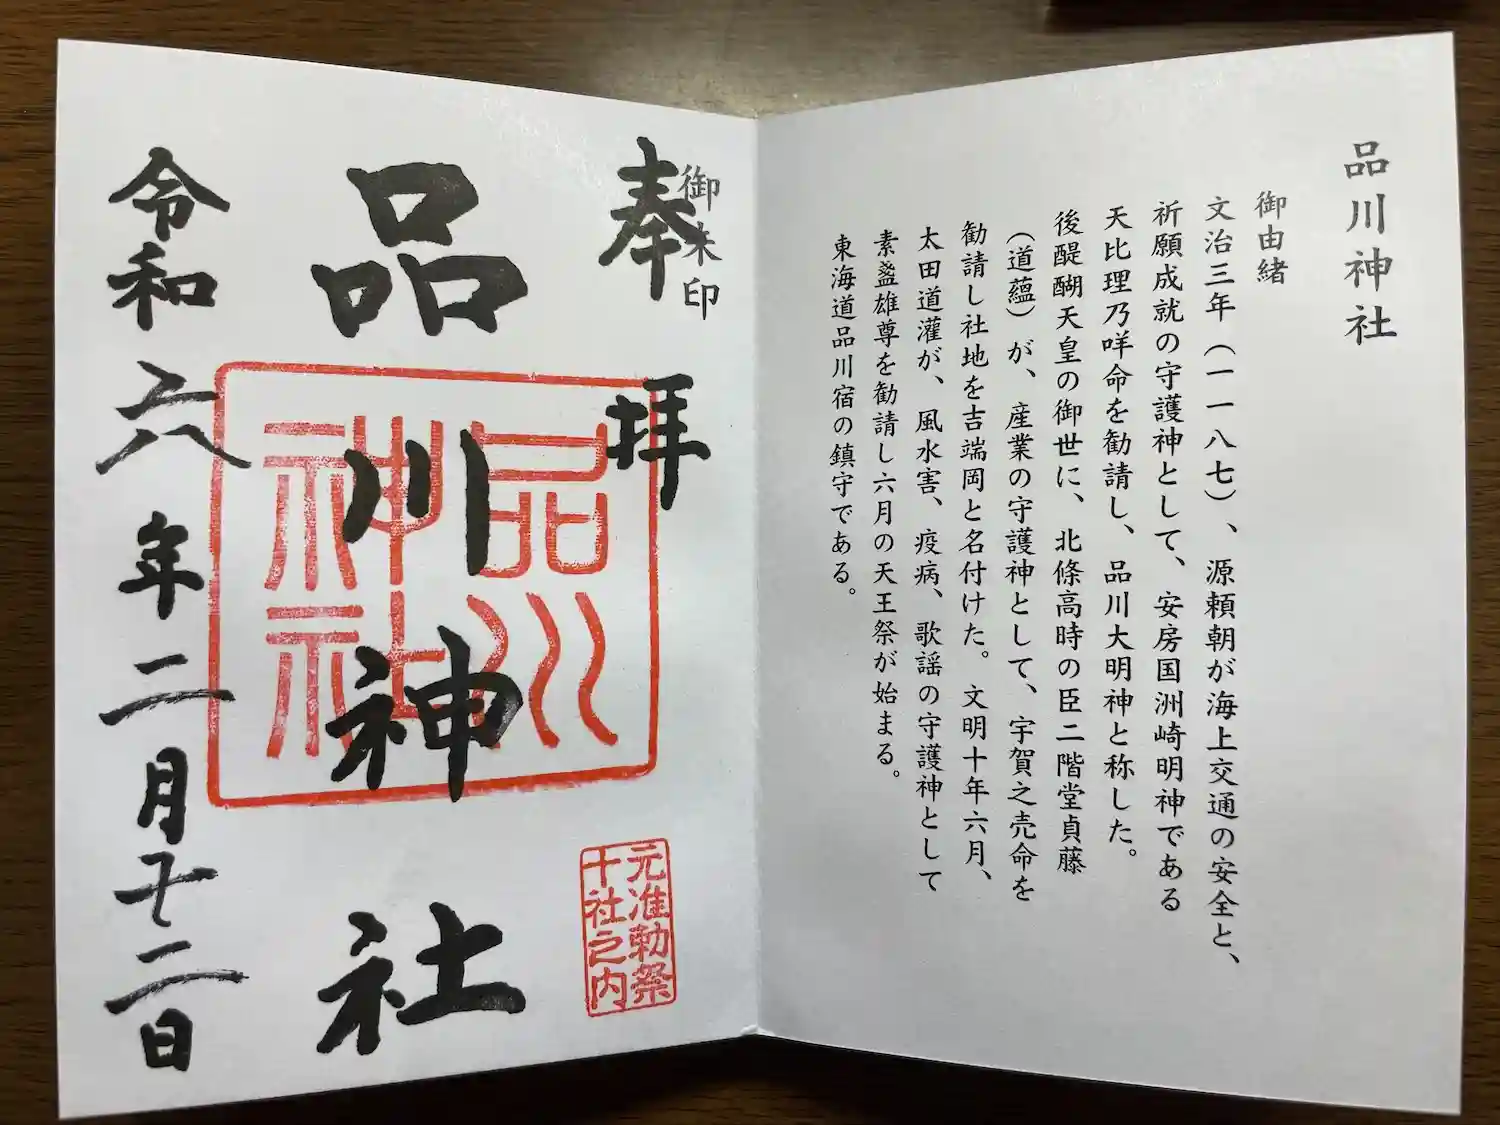 品川神社
御由緒
文治三年（一一八七）、源頼朝が海上交通の安全と、
祈願成就の守護神として、安房国洲崎明神である
天比理乃咩命を勧請し、品川大明神と称した。
後醍醐天皇の御世に、北條高時の臣二階堂貞藤
（道蘊）が、産業の守護神として、宇賀之売命を
勧請し社地を吉端岡と名付けた。文明十年六月、
太田道灌が、風水害、疫病、歌謡の守護神として
素盞雄尊を勧請し六月の天王祭が始まる。
東海道品川宿の鎮守である。
御朱印
奉拝
元准勅祭
十社之内
品川神社
品川
神社
令和六年二月廿二日